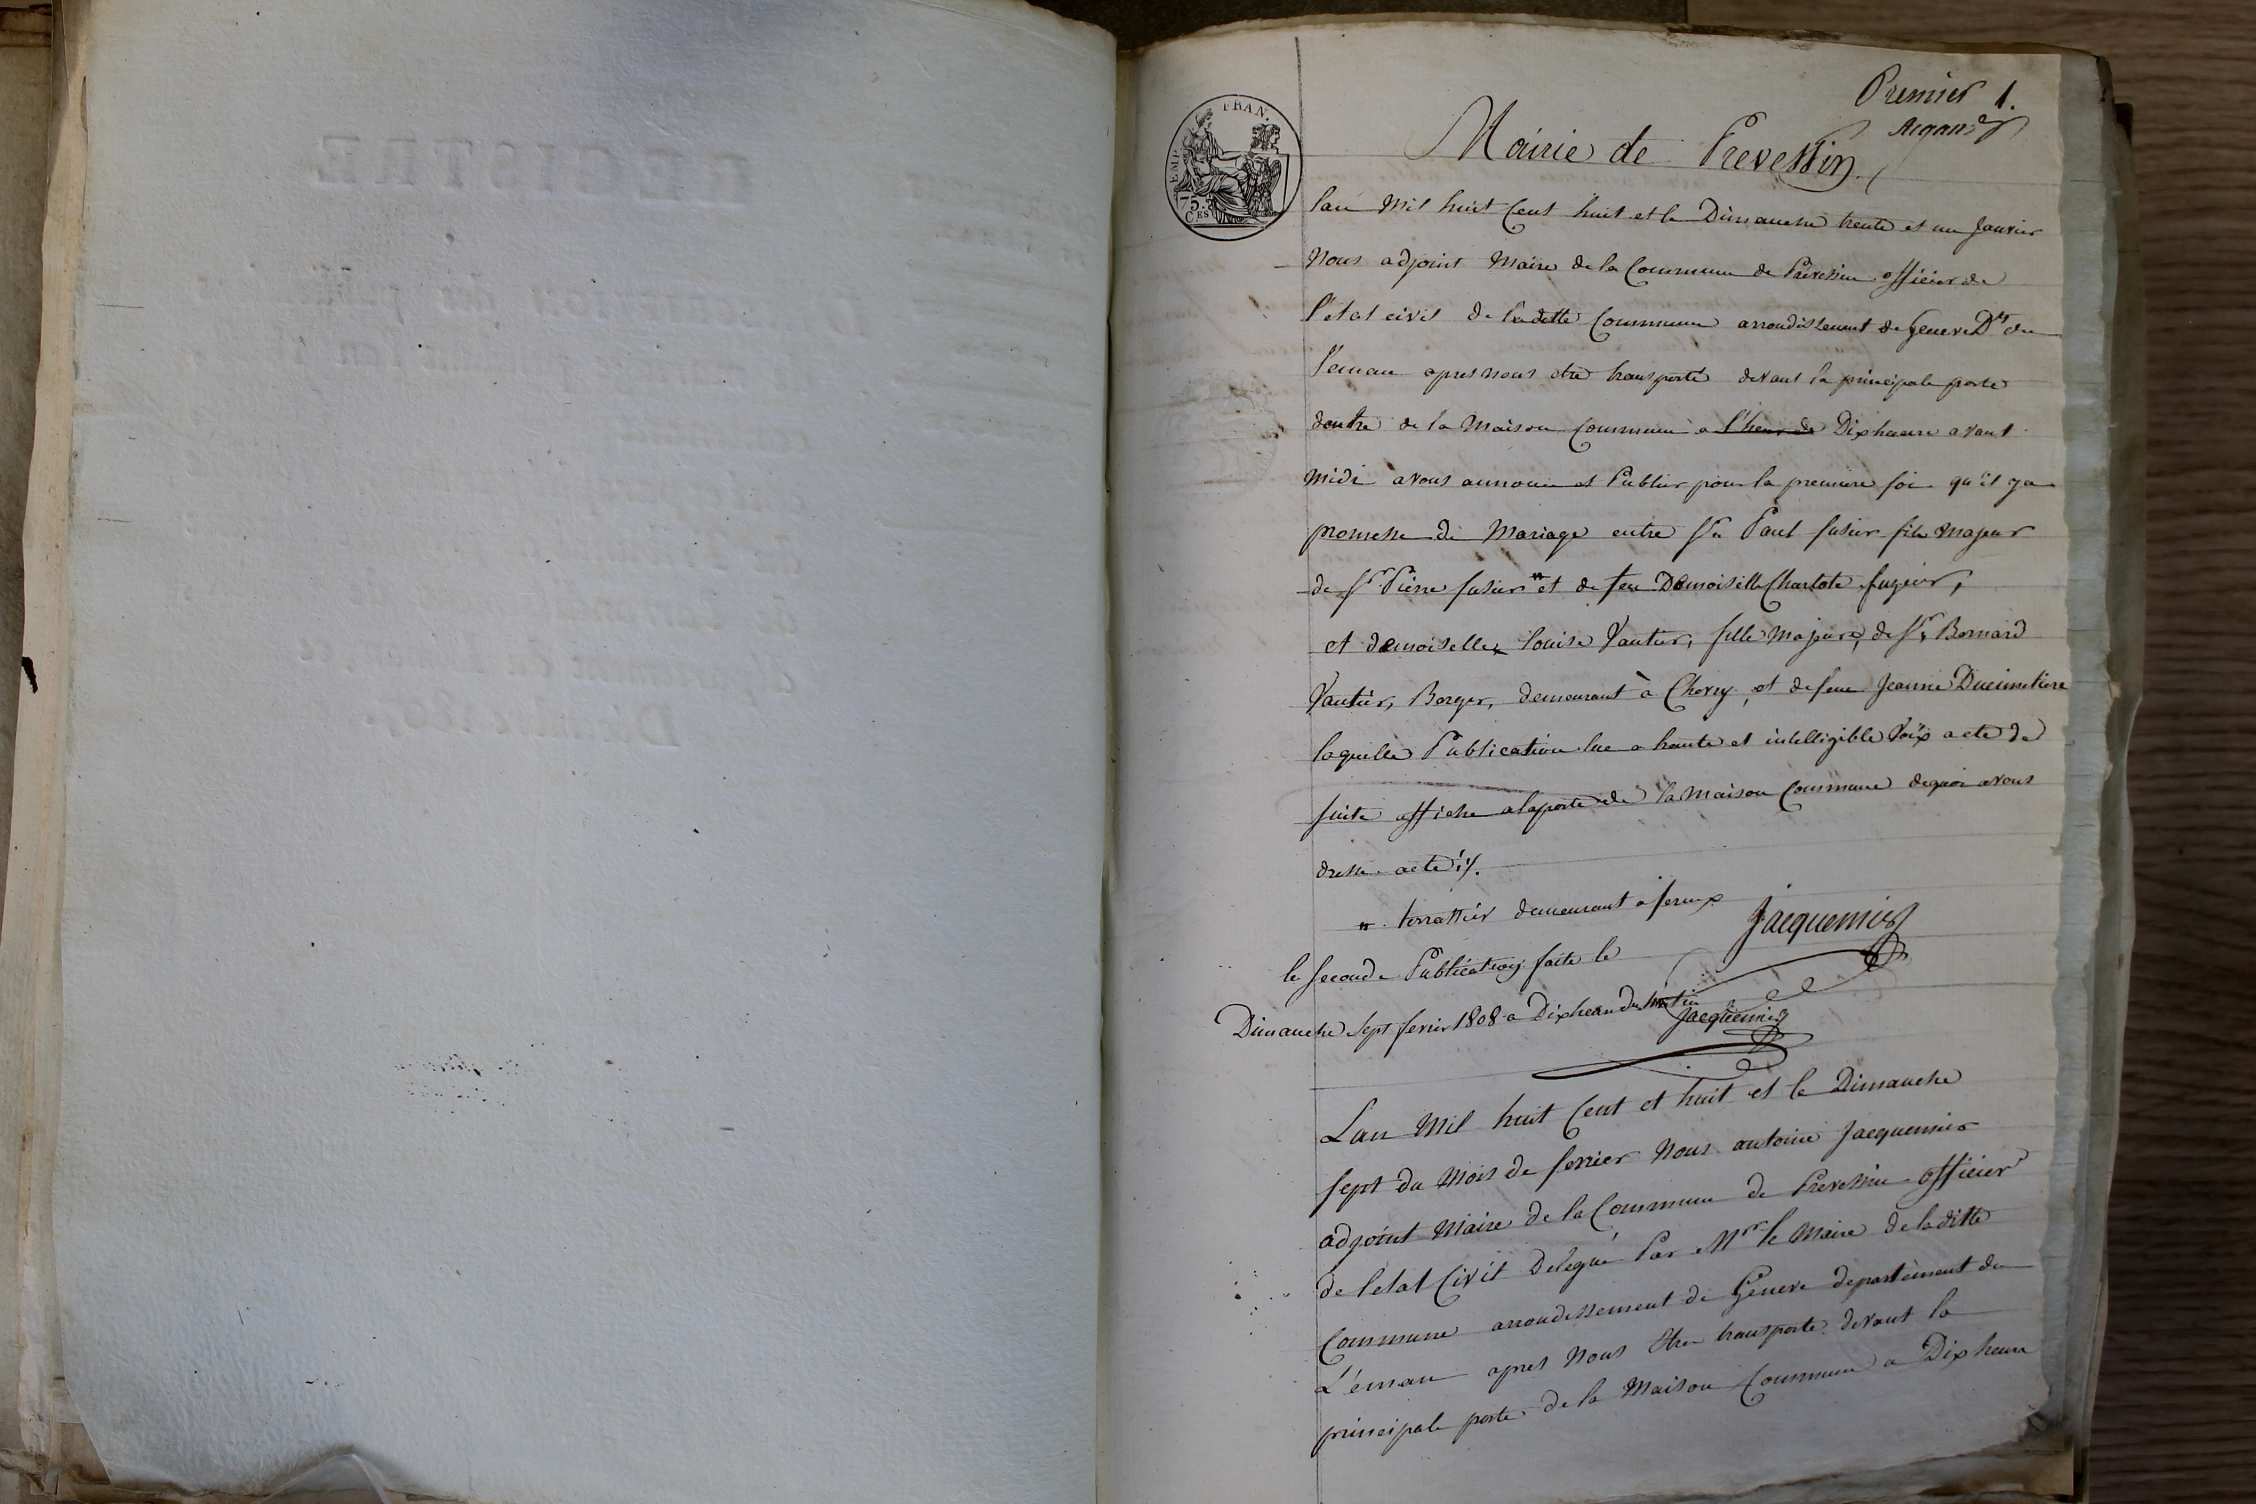 Premier 1.
Argand
FRAN.
EMP.
75.
CES
Mairie de Prevessin
lan Mil huit Cent huit et le Dimanche trente et un Janvier
Nous adjoint Maire de la Commune de Prevessin officier de
l'etat civil de ladette Commune arrondissement de Geneve Dt du
l'eman apres nous etre transporté devant la principale porte
dentre de la Maison Commune a l'heur de Dix heure avant
midi avons annonce et Publier pour la premiere foi qu'il ya
promesse de Mariage entre Sr Paul fusier fils Majeur
de Sr Pierre fusier et de feu Demoiselle Charlote fuzier,
et demoiselle louise Vautier, fille Majeure, de Sr Bernard
Vautier, Berger, demeurant à Chevry, et de feue Jeanne Ducimetiere
laquelle Publication lue a haute et intelligible Voix a ete de
suite affiche a laporte de la Maison Commune dequoi avons
dresse acte
terrattier demeurant a
le seconde Publication faite le
Jacquemier
Dimanche sept fevrir 1808 a Dix heur du Matin
Jacquemier
Lan Mil huit Cent et huit et le Dimanche
sept du Mois de fevrier Nous antoine Jacquemier
adjoint Maire de la Commune de Prevessin officier
de letat Civil Delegué Par Mr le Maire de laditte
Commune arrondissement de Geneve departement du
L'éman apres Nous Etre transporte devant la
principale porte de la Maison Commune a Dix heure